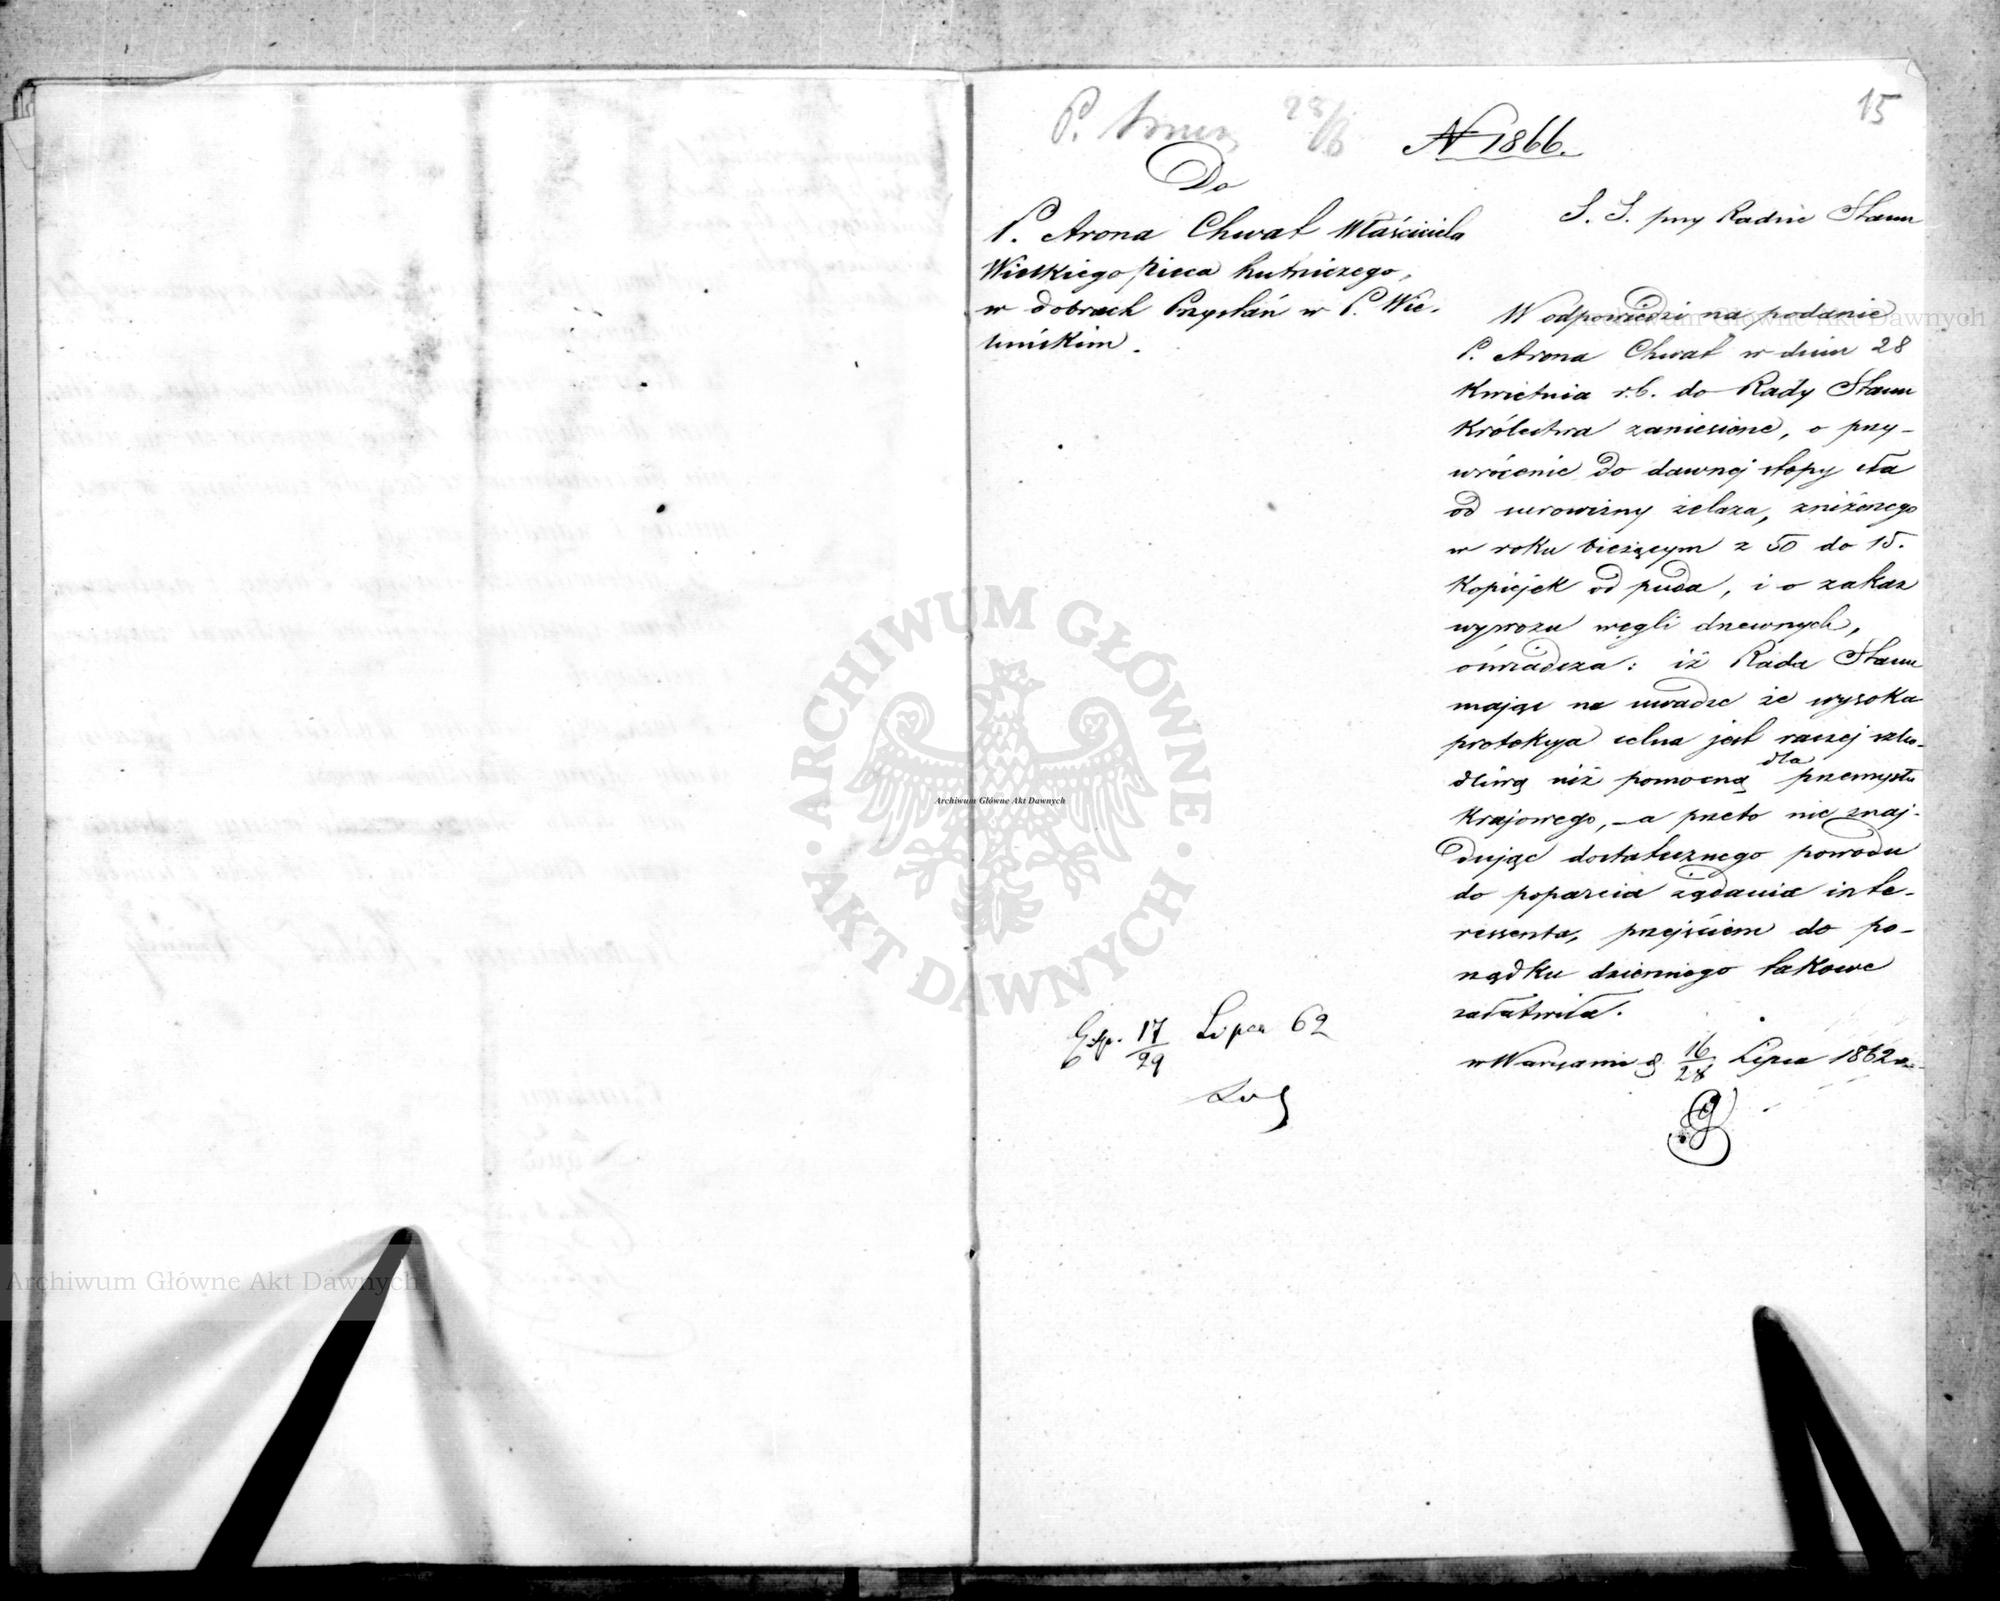 15
P.
28/6
N 1866.
Do
P. Arona Chwat Właściciela
Wielkiego pieca hutniczego,
w dobrach Przystáń w P. Wie-
luńskim.
S. S. przy Radzie Stanu
W odpowiedzi na podanie
P. Arona Chwat w dniu 28
Kwietnia r.b. do Rady Stanu
Królestwa zaniesione, o przy-
wrócenie do dawnej stopy cła
od surowizny żelaza, zniżonego
w roku bieżącym z 50 do 15.
Kopiejek od puda, i o zakaz
wywozu węgli drzewnych,
oświadcza: iż Rada Stanu
mając na uwadze że wysoka
protekcya celna jest raczej szko-
dliwą niż pomocną dla przemysłu
Krajowego, – a przeto nie znaj-
dując dostatecznego powodu
do poparcia żądania inte-
ressenta, przejściem do po-
rządku dziennego takowe
załatwiła.
w Warszawie d. 16/28 Lipca 1862 r.
Exp. 17/29 Lipca 62
Archiwum Główne Akt Dawnych
ARCHIWUM GŁÓWNE
AKT DAWNYCH
Archiwum Główne Akt Dawnych
Archiwum Główne Akt Dawnych